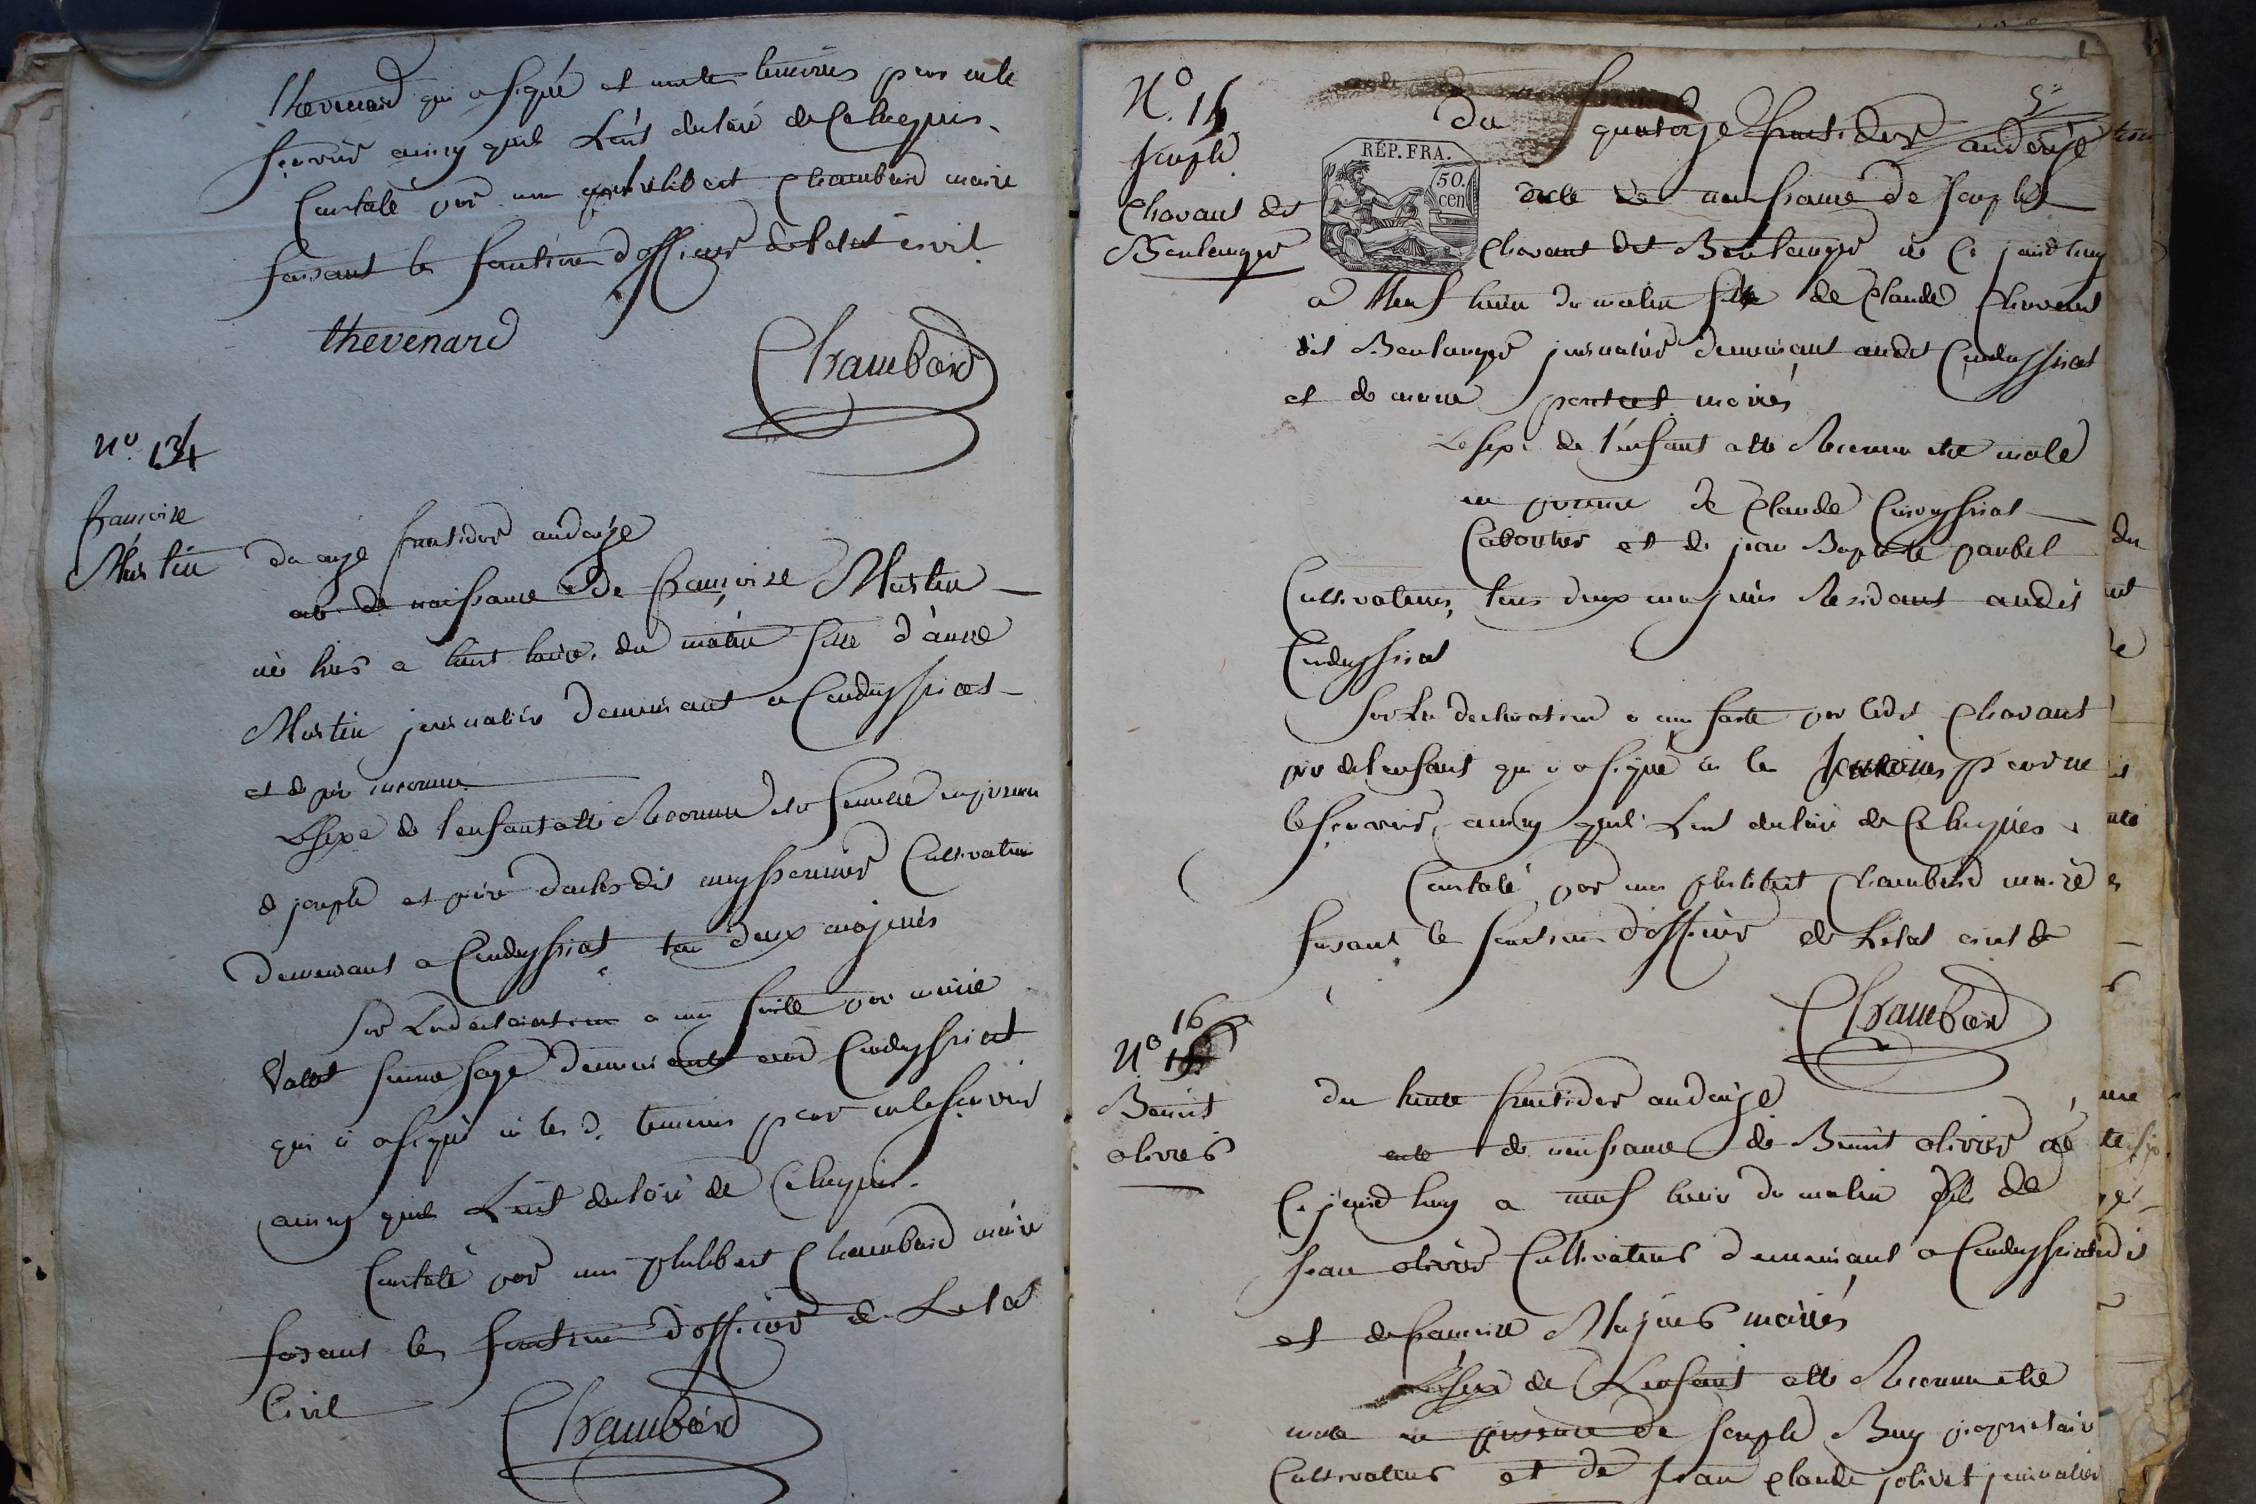 thevenard qui a signé et non les temoins pour ne le
scavoir ainsy quil Lont declaré de Ce enquis.
Constaté par moi philibert Chambard maire
faisant les fonctions d'officier de letat civil
thevenard
Chambard
N° 14
francoise
Martin
du onze fructidor an douze
acte de naissance de francoise Martin
née hier a huit heures du matin fille d'anne
Martin journaliere demeurant a Condeyssiat
et de pere inconnu
Le sexe de l'enfant a été Reconnu etre femelle en presence
de joseph et pierre
Cultivateurs
demeurant a Condeyssiat tous deux majeurs
Sur La declaration a moi faite par marie
femme sage demeurante aud Condeyssiat
qui a signé et les d. temoins pour ne le scavoir
ainsy quil Lont declaré de Ce enquis.
Constaté par moi philibert Chambard maire
faisant les fonctions d'officier de Letat
Civil
Chambard
N° 15
joseph
Chavant dit
Boulanger
RÉP. FRA.
50.
cen
Du quatorze fructidor an douze
acte de naissance de joseph
Chavant dit Boulanger né Ce jourd'huy
a neuf heures du matin fils de Claude Chavant
dit Boulanger journalier demeurant audit Condeyssiat
et de marie mariés
Le sexe de l'enfant a été Reconnu etre male
en presence de Claude Condeyssiat
Cabaretier et de jean Baptiste
Cultivateurs, tous deux majeurs Residant audit
Condeyssiat
Sur La declaration a moi faite par ledit Chavant
pere de l'enfant qui a signé et les temoins pour ne
le scavoir, ainsy quil Lont declaré de Ce enquis.
Constaté par moi philibert Chambard maire
faisant les fonctions d'officier de Letat civil
Chambard
16
N°
Benoit
olivier
du fructidor an douze
acte de naissance de Benoit olivier né
Ce jourd huy a neuf heures du matin fils de
jean olivier Cultivateur demeurant a Condeyssiat
et de francoise mariés
Le sexe de L'enfant a été Reconnu etre
male en presence de joseph Buy proprietaire
Cultivateur et de jean Claude jolivet journalier